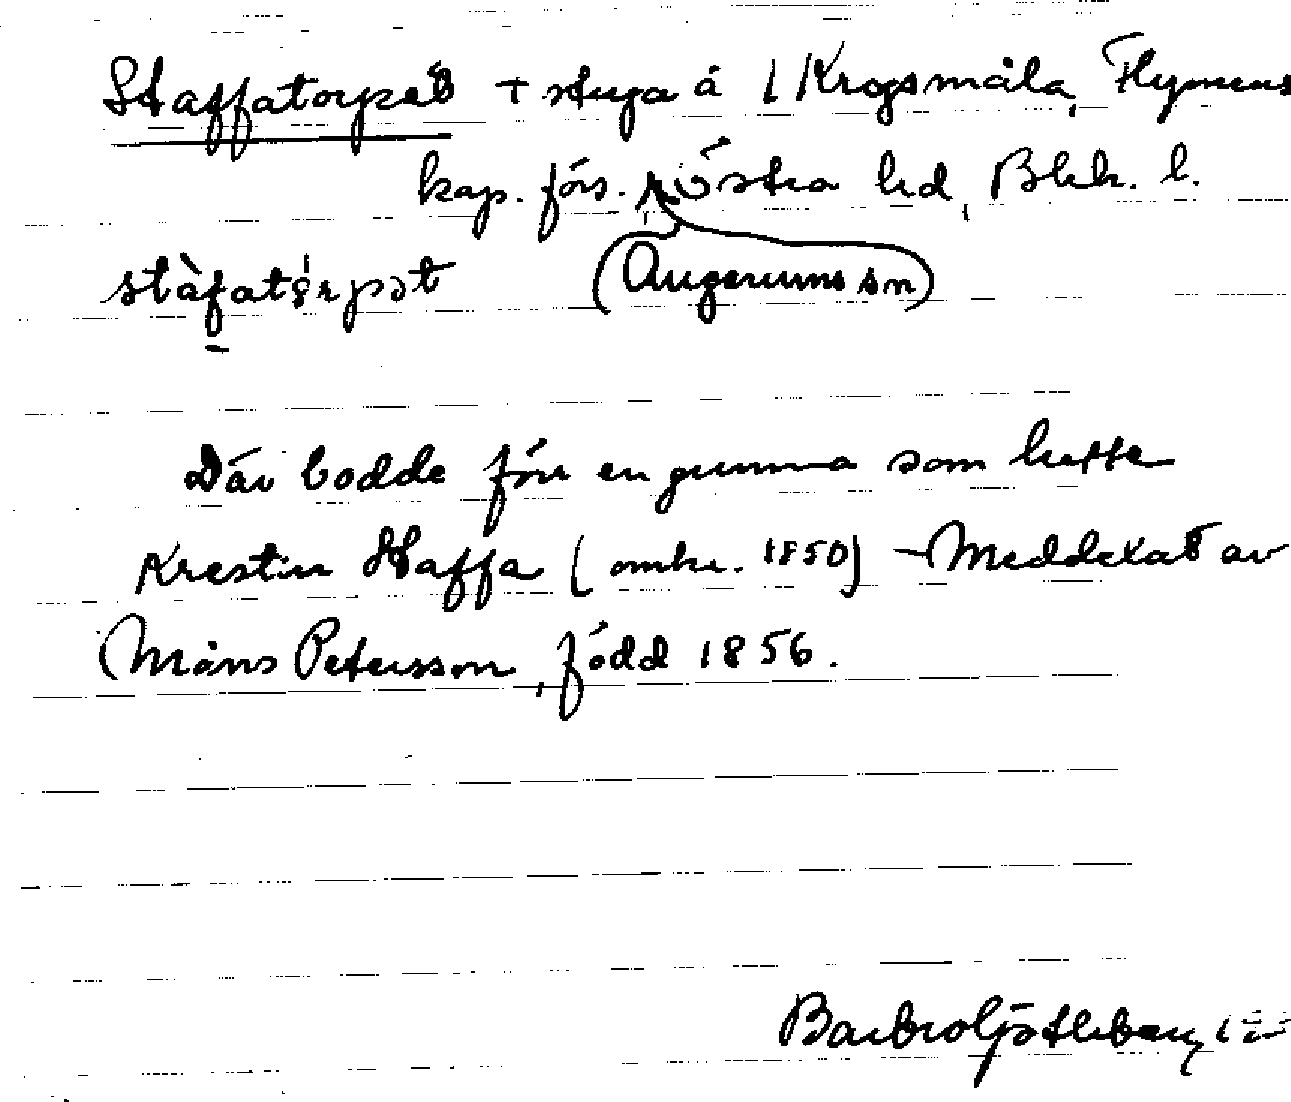 Staffatorpet + stuga å 1 Krogsmåla, Flymens
kap. förs. Östra hd, Blek. l.
stàfatǫrpət (Augerums sn)
Där bodde förr en gumma som hette
Krestin Staffa (omkr. 1850) – Meddelat av
Måns Petersson, född 1856.
Barbro